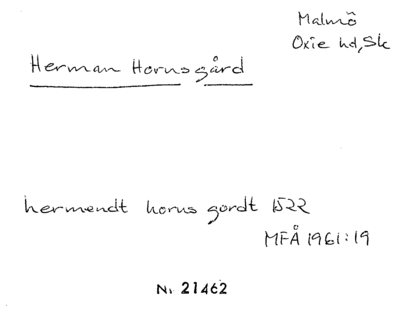 Malmö
Oxie hd, Sk
Herman Hornsgård
hermendt horns gordt 1522
MFÅ 1961:19
Nr 21462